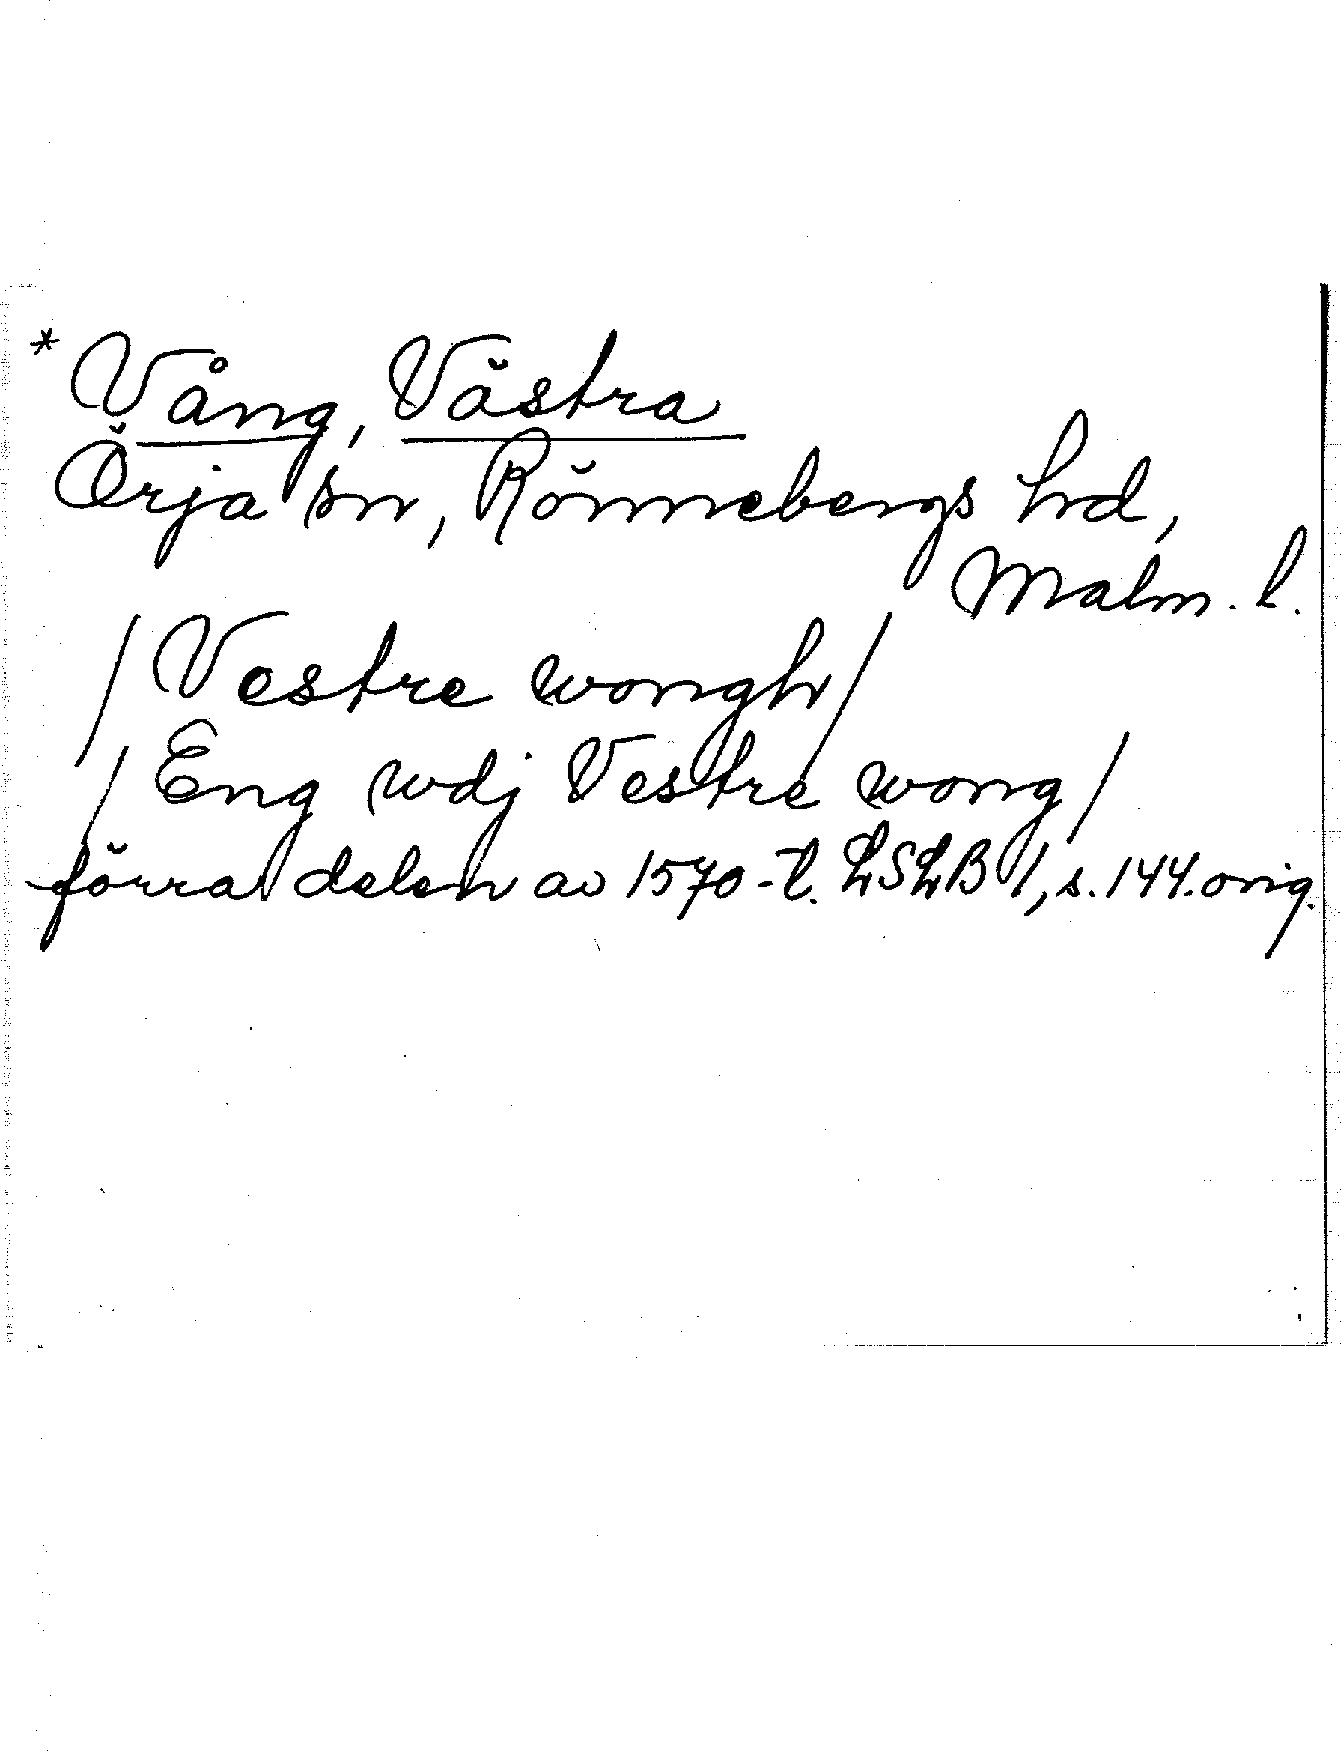 * Vång, Västra
Örja sn, Rönnebergs hrd,
Malm. l.
/Vestre wongh/
/Eng wdj Vestre wong/
förra delen av 1570-t. LSLB 1, s. 144. orig.